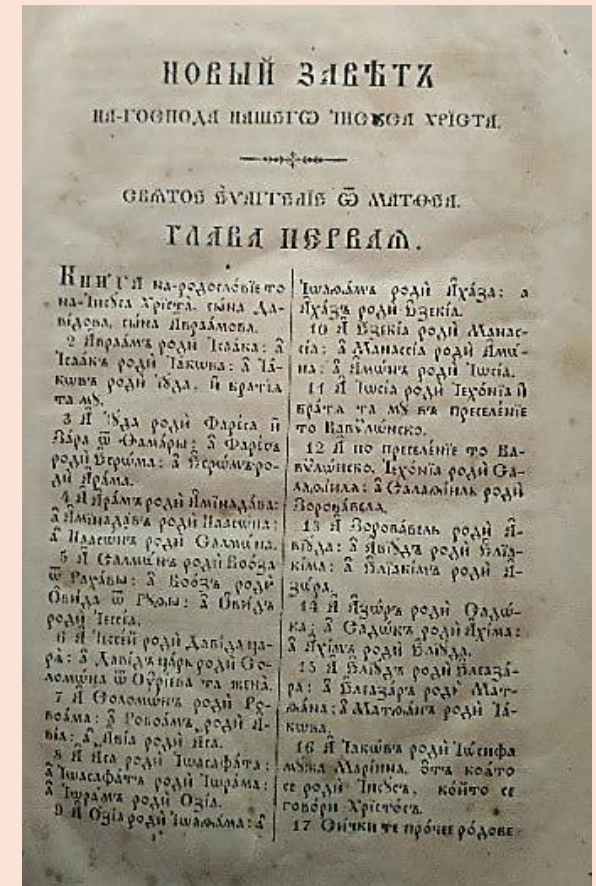 НОВЫЙ ЗАВѢТЪ
НА-ГОСПОДА НАШЕГѠ ІИСꙋСА ХРІСТА.
СВѦТОЕ ЕѴАГГЕЛІЕ Ѿ МАТѲЕА.
ГЛАВА ПЕРВАѦ.
КНИГА на-родосло́вїе то
на-Інсꙋса Хрїста̀, сы́на Да-
ві́дова, сы́на А҆враа́мова.
2 А҆враа́мъ родѝ І҆саа́ка: а҆
І҆саа́къ родѝ І҆а́кѡва: а҆ І҆а́-
кѡвъ родѝ І҆ꙋда, и҆ бра́тїѧ
та мꙋ̀.
3 А҆ І҆ꙋда родѝ Фаре́са и҆
За́ра ѿ Ѳама́ры: а҆ Фаре́съ
родѝ Е҆сро́ма: а҆ Е҆сро́мъ ро-
дѝ А҆ра́ма.
4 А҆ А҆ра́мъ родѝ А҆мїнада́ва:
а҆ А҆мїнада́въ родѝ Наасѡ́на:
а҆ Наасѡ́нъ родѝ Салмѡ́на.
5 А҆ Салмѡ́нъ родѝ Воо́за
ѿ Раха́вы: а҆ Воо́зъ родѝ
Ѻ҆ви́да ѿ Рꙋ́ѳы: а҆ Ѻ҆ви́дъ
родѝ І҆ессе́а.
6 А҆ І҆ессе́й родѝ Даві́да ца-
рѧ̀: а҆ Даві́дъ ца́рь родѝ Со-
ломѡ́на ѿ Оу҆рі́ева та жена̀.
7 А҆ Соломѡ́нъ родѝ Ро-
воа́ма: а҆ Ровоа́мъ родѝ А҆-
ві́а: а҆ А҆ві́а родѝ А҆са.
8 А҆ А҆са родѝ І҆ѡсафа́та:
а҆ І҆ѡсафа́тъ родѝ І҆ѡра́ма:
а҆ І҆ѡра́мъ родѝ Ѻ҆зі́а.
9 А҆ Ѻ҆зі́а родѝ І҆ѡаѳа́ма: а҆
І҆ѡаѳа́мъ родѝ А҆ха́за: а
А҆ха́зъ родѝ Е҆зекі́а.
10 А҆ Е҆зекі́а родѝ Манас-
сі́а: а҆ Манассі́а родѝ А҆мѡ́-
на: а҆ А҆мѡ́нъ родѝ І҆ѡсі́а.
11 А҆ І҆ѡсі́а родѝ І҆ехо́нїа и҆
бра́тѧ та мꙋ̀ въ преселе́нїе
то Вавѷлѡ́нско.
12 А҆ по преселе́нїе то Ва-
вѷлѡ́нско, І҆ехо́нїа родѝ Са-
лаѳі́илѧ: а҆ Салаѳі́иль родѝ
Зорова́велѧ.
13 А҆ Зорова́вель родѝ А҆-
вїꙋ́да: а҆ А҆вїꙋ́дъ родѝ Е҆лїа-
кі́ма: а҆ Е҆лїакі́мъ родѝ А҆-
зѡ́ра.
14 А҆ А҆зѡ́ръ родѝ Садѡ́-
ка: а҆ Садѡ́къ родѝ А҆хі́ма:
а҆ А҆хі́мъ родѝ Е҆лїꙋ́да.
15 А҆ Е҆лїꙋ́дъ родѝ Е҆леаза́-
ра: а҆ Е҆леаза́ръ родѝ Мат-
ѳа́на: а҆ Матѳа́нъ родѝ І҆а́-
кѡва.
16 А҆ І҆а́кѡвъ родѝ І҆ѡ́сифа
мꙋ́жа Марі́ина, отъ коѧ́то
се родѝ І҆исꙋ́съ, ко́йто се
гово́ри Хрїсто́съ.
17 Си́чки те про́чее ро́дове